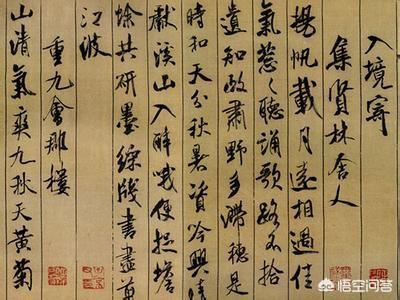 入境寄
集賢林舍人
揚帆載月遠相過佳
氣葱々聽誦歌路不拾
遺知政肅野多滯穗是
時和天分秋暑資吟興晴
獻溪山入醉哦便捉蟾
蜍共研墨綵牋書盡剪
江波
重九會郡樓
山清氣爽九秋天黃菊
悟空问答